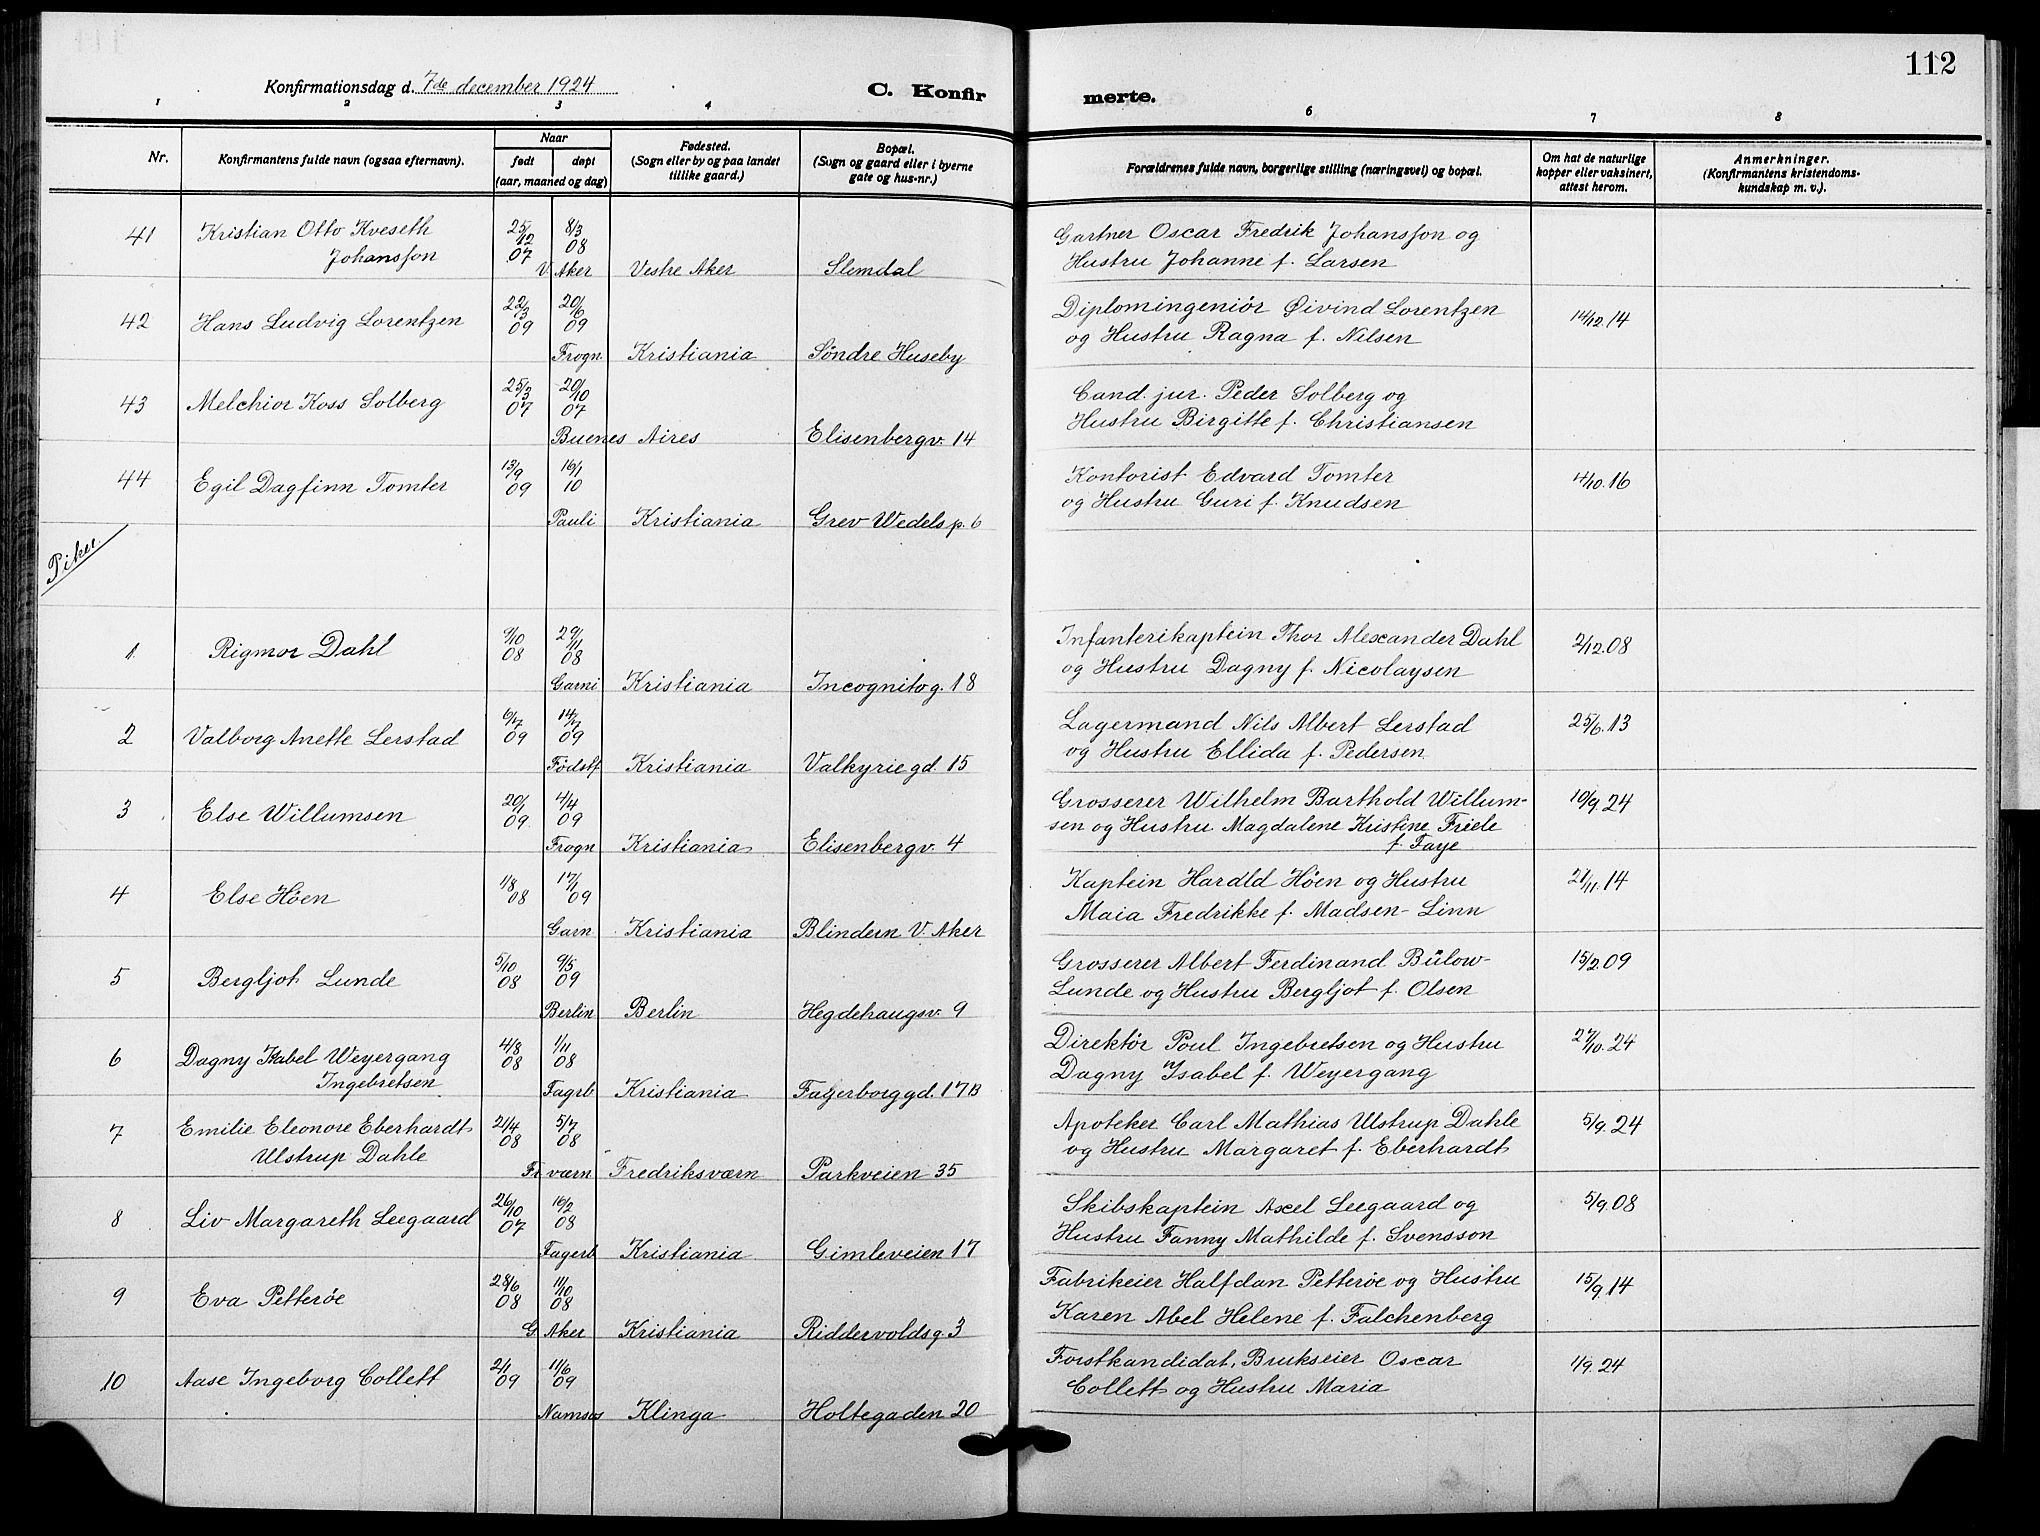 112
Konfirmationsdag d. 7de december 1924
C. Konfir
merte.
1 2 3 4 6 7 8
Nr.
Konfirmantens fulde navn (ogsaa efternavn).
Naar
født døpt
(aar, maaned og dag)
Fødested.
(Sogn eller by og paa landet
tillike gaard.)
Bopæl.
(Sogn og gaard eller i byerne
gate og hus-nr.)
Forældrenes fulde navn, borgerlige stilling (næringsvei) og bopæl.
Om hat de naturlige
kopper eller vaksinert,
attest herom.
Anmerkninger.
(Konfirmantens kristendoms-
kundskap m. v.).
41 Kristian Otto Kveseth 25/12 8/3 Gartner Oscar Fredrik Johansson og
Johansson 07 08
V. Aker Vestre Aker Slemdal Hustru Johanne f. Larsen
42 Hans Ludvig Lorentzen 22/3 09 20/6 09 Diplomingeniör Øivind Lorentzen 14/12.14
Frogn. Kristiania Söndre Huseby og Hustru Ragna f. Nilsen
43 Melchior Koss Solberg 25/3 07 20/10 07 Cand. jur. Peder Solberg og
Buenes Aires Elisenbergv. 14 Hustru Birgitte f. Christiansen
44 Egil Dagfinn Tomter 13/9 09 16/1 10 Kontorist Edvard Tomter 4/10.16
Pauli Kristiania Grev Wedels p. 6 og Hustru Guri f. Knudsen
Piker.
1 Rigmor Dahl 9/10 08 29/11 08 Infanterikaptein Thor Alexander Dahl 2/12.08
Garni Kristiania Incognitog. 18 og Hustru Dagny f. Nicolaysen
2 Valborg Anette Lerstad 6/7 09 14/7 09 Lagermand Nils Albert Lerstad 25/6.13
Fødstf Kristiania Valkyriegd. 15 og Hustru Ellida f. Pedersen
3 Else Willumsen 20/1 09. 4/4 09 Grosserer Wilhelm Barthold Willum- 10/9.24
sen og Hustru Magdalene Kristine Friele
Frogn Kristiania Elisenbergv. 4 f. Faye
4 Else Höen 1/8 08 17/1 09 Kaptein Harald Höen og Hustru 21/11.14
Garn Kristiania Blindern V. Aker Maia Fredrikke f. Madsen-Linn
5 Bergljot Lunde 5/10 08 9/5 09 Grosserer Albert Ferdinand Bülow- 15/2.09
Berlin Berlin Hegdehaugsv. 9 Lunde og Hustru Bergljot f. Olsen
6 Dagny Isabel Weyergang 4/8 08 1/11 08 Direktör Poul Ingebretsen og Hustru 27/10.24
Ingebretsen
Fagrb Kristiania Fagerborggd. 17B Dagny Isabel f. Weyergang
7 Emilie Eleonore Eberhardt 21/4 08 5/7 08 Apoteker Carl Mathias Ulstrup Dahle 5/9.24
Ulstrup Dahle og Hustru Margaret f. Eberhardt
Fr værn Fredriksværn Parkveien 35
8 Liv Margareth Leegaard 26/10 07 16/2 08 Skibskaptein Axel Leegaard og 5/9.08
Fagerb Kristiania Gimleveien 17 Hustru Fanny Mathilde f. Svensson
9 Eva Petterøe 28/6 08 11/10 08 Fabrikeier Halfdan Petterøe og Hustru 15/9.14
G. Aker Kristiania Riddervoldsg. 3 Karen Abel Helene f. Falchenberg
10 Aase Ingeborg Collett 2/1 09 11/6 09 Forstkandidat, Brukseier Oscar 1/9.24
Collett og Hustru Maria
Namsos Klinga Holtegaden 20